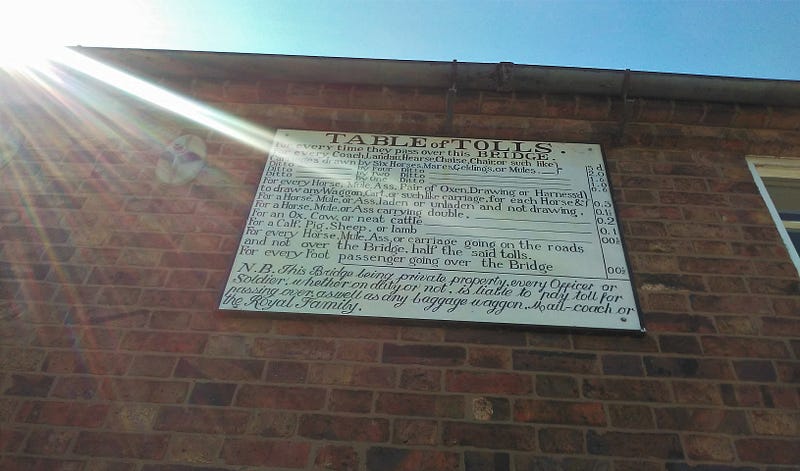 TABLE of TOLLS.
For every time they pass over this BRIDGE.
For every Coach, Landau, Hearse, Chaise, Chair, or such like
Carriages drawn by Six Horses, Mares, Geldings, or Mules
Ditto Four Ditto 2.0
Ditto by Two Ditto
Ditto
For every Horse, Mule, Ass, Pair of Oxen, Drawing or Harness'd
to draw any Waggon, Cart, or such like carriage, for each Horse &c 0.3
For a Horse, Mule, or Ass, laden or unladen and not drawing. 0.1½
For a Horse, Mule, or Ass carrying double. 0.2
For an Ox, Cow, or neat cattle 0.1
For a Calf, Pig, Sheep, or lamb 00½
For every Horse, Mule, Ass, or carriage going on the roads
and not over the Bridge, half the said tolls.
For every Foot passenger going over the Bridge 00½
N.B. This Bridge being private property, every Officer or
Soldier, whether on duty or not, is liable to pay toll for
passing over, as well as any baggage waggon, Mail-coach or
the Royal Family.